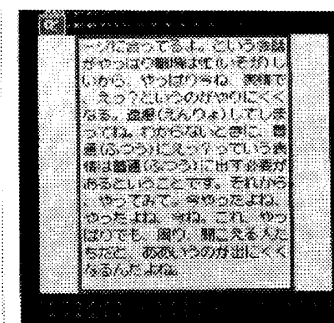 ージに合ってるよ。という会話
がやっぱり職場は忙(いそが)し
いから、やっぱりさね、表情で
、えっ？というのがやりにくく
なる。遠慮(えんりょ)してしま
ってね。わからないときに、普
通(ふつう)にえっ？っていう表
情は普通(ふつう)に出す必要が
あるということです。それから
、やってみて。今やったよね、
やったよね、今ね。これ、やっ
ぱりでも、周り、聞こえる人た
ちだと、ああいうのが出にくく
なるんだよね。